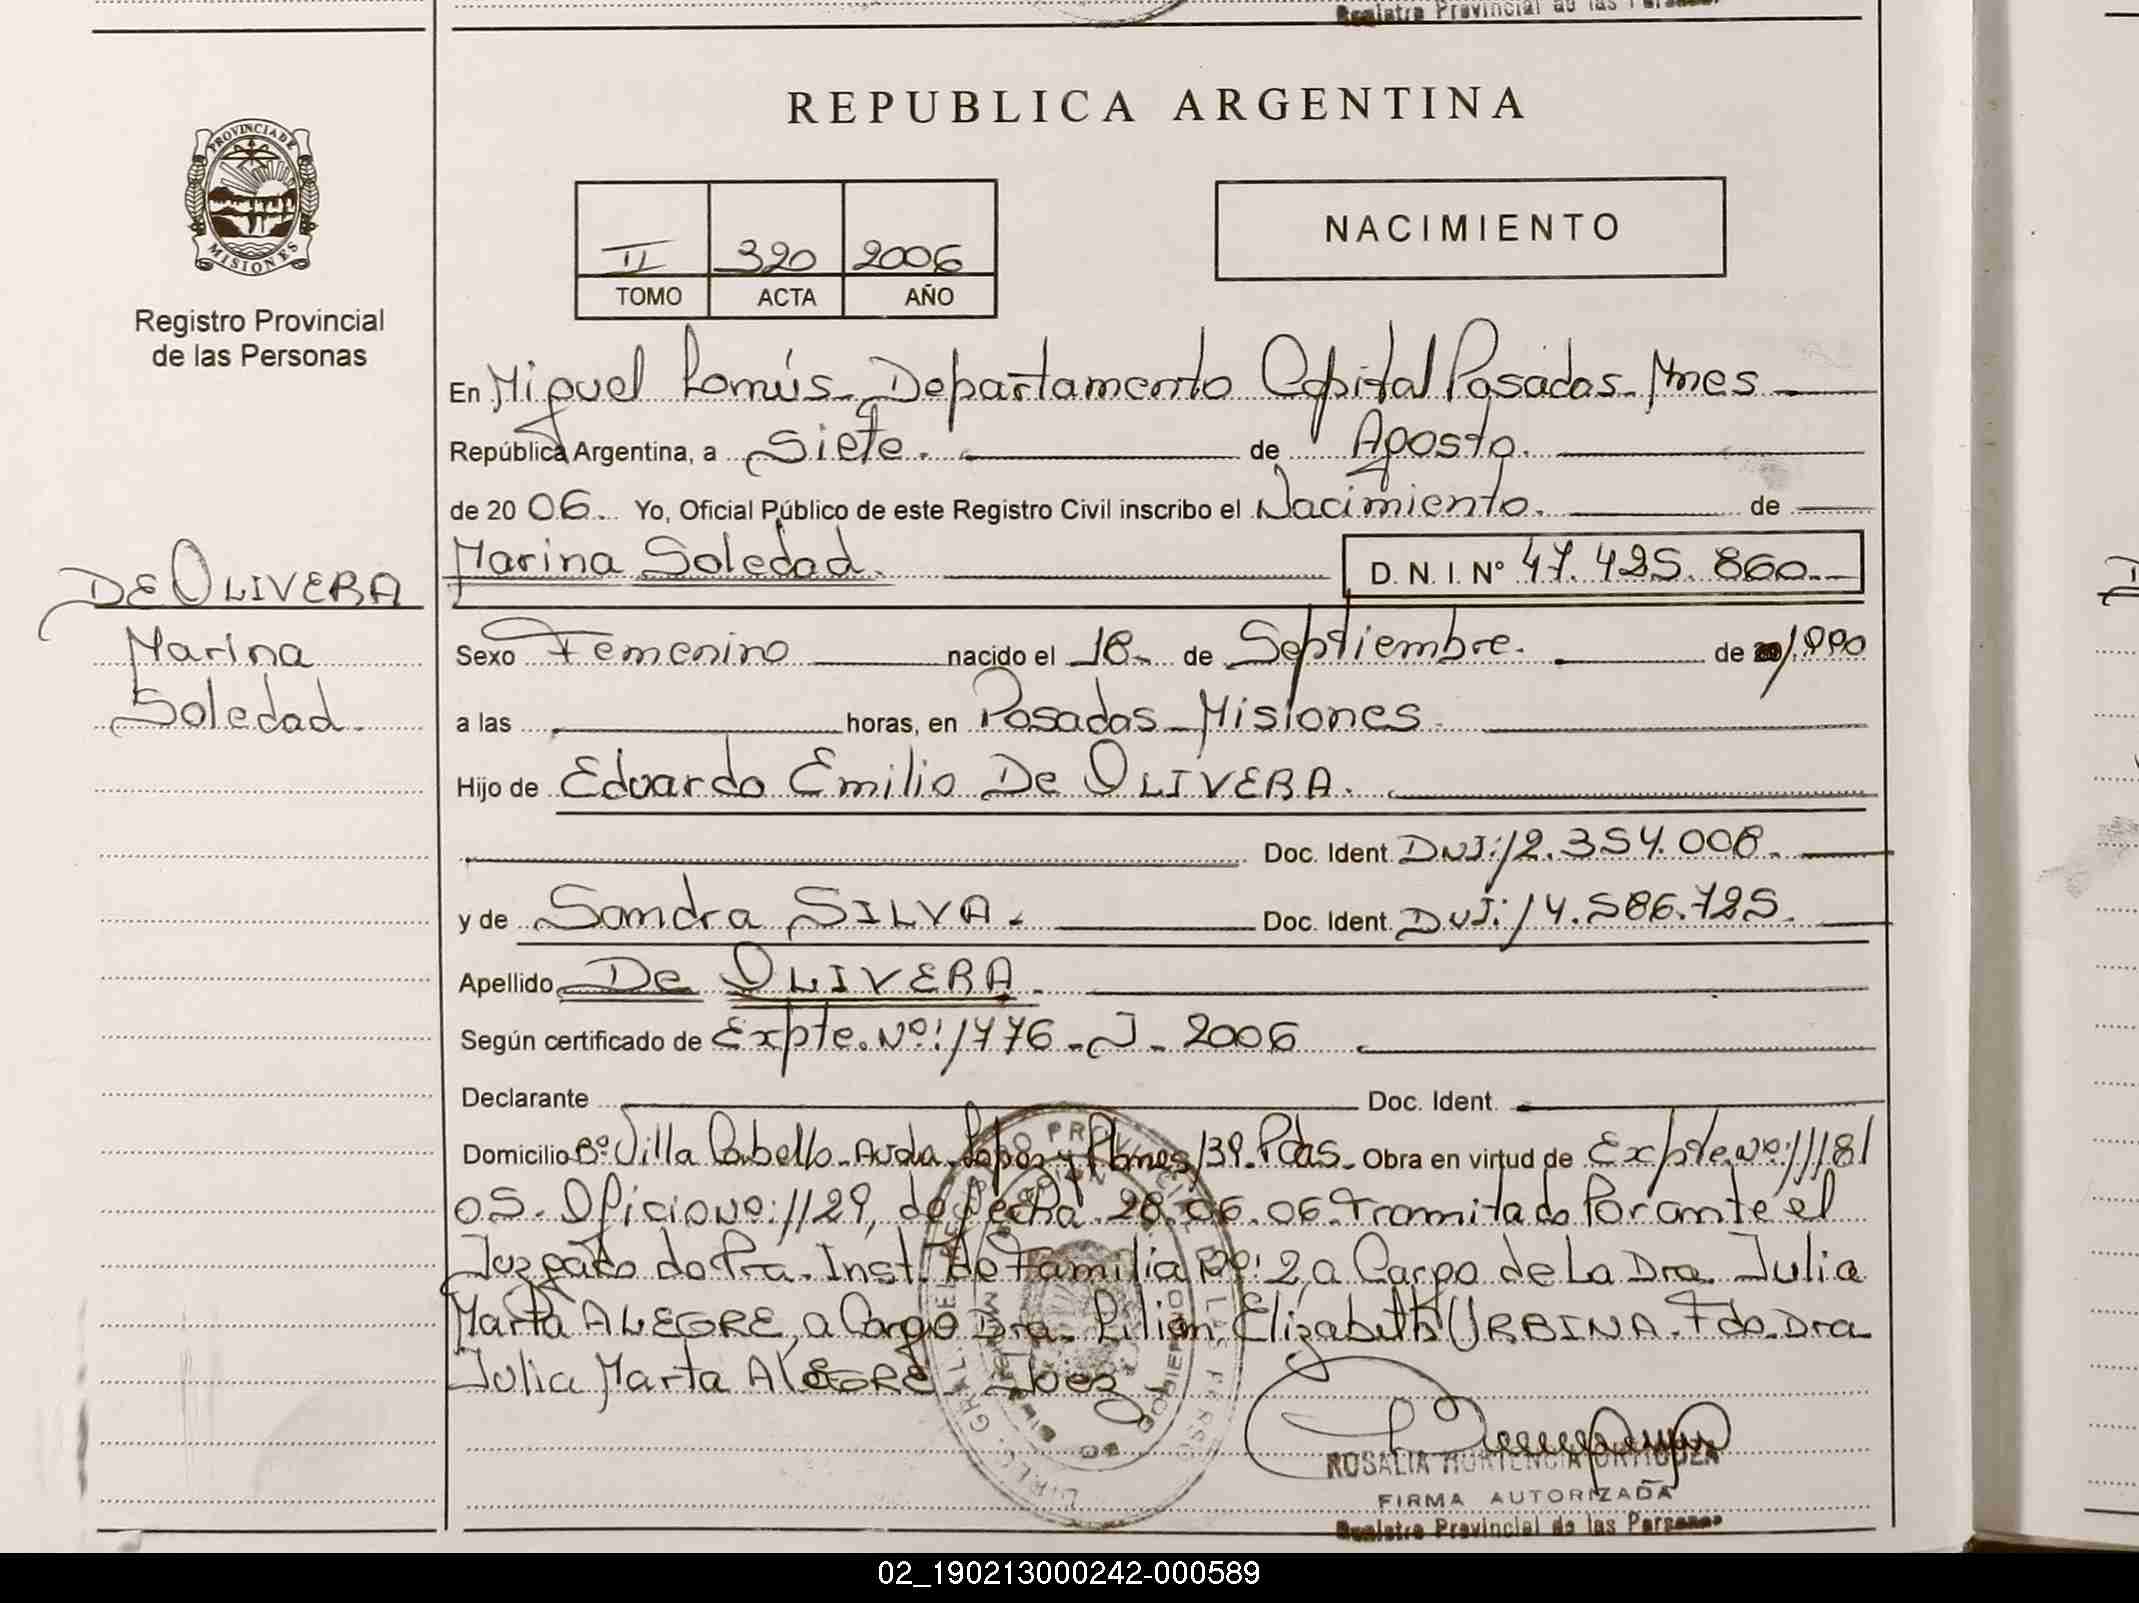 Registro Provincial de las Personas
REPUBLICA ARGENTINA
PROVINCIA DE MISIONES
Registro Provincial
de las Personas
II 320 2006
TOMO ACTA AÑO
NACIMIENTO
En Miguel Lanús - Departamento Capital Posadas - Mnes
República Argentina, a Siete. de Agosto.
de 20 06. Yo, Oficial Público de este Registro Civil inscribo el Nacimiento. de
Marina Soledad. D. N. I. Nº 47.425.860.-
DE OLIVERA
Marina
Soledad.
Sexo Femenino nacido el 18- de Septiembre. de 1990
a las horas, en Posadas - Misiones.
Hijo de Eduardo Emilio De OLIVERA.
Doc. Ident. DNI: 12.354.008.
y de Sandra SILVA. Doc. Ident. DNI: 14.586.725.
Apellido De OLIVERA.
Según certificado de Expte. Nº: 1776 - J - 2006
Declarante Doc. Ident.
Domicilio Bº Villa Cabello - Avda. López y Planes 139. Pdas. Obra en virtud de Expte Nº: 1118/
05. Oficio Nº: 1129, de fecha 28.06.06. Tramitado Por ante el
Juzgado de Pra. Inst. de Familia Nº: 2, a Cargo de La Dra. Julia
Marta ALEGRE, a Cargo Dra. Lilian Elizabeth URBINA. Fdo. Dra
Julia Marta ALEGRE Juez
ROSALIA HORTENCIA
FIRMA AUTORIZADA
Registro Provincial de las Personas
02_190213000242-000589